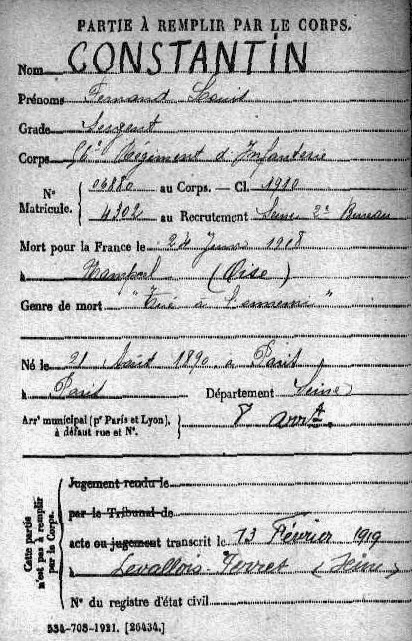 PARTIE À REMPLIR PAR LE CORPS.
Nom CONSTANTIN
Prénoms Fernand Louis
Grade Sergent
Corps Régiment d'Infanterie
N° Matricule. 06880 au Corps. — Cl. 1910
4302 au Recrutement Seine 2e Bureau
Mort pour la France le 24 Juin 1918
à (Oise)
Genre de mort "Tué à l'ennemi"
Né le 21 Août 1890 à Paris
à Paris Département Seine
Arrt municipal (pr Paris et Lyon), à défaut rue et N°. 8e arrt.
Cette partie n'est pas à remplir par le Corps.
Jugement rendu le
par le Tribunal de
acte ou jugement transcrit le 13 Février 1919
à Levallois Perret (Seine)
N° du registre d'état civil
534-708-1921. [26434.]